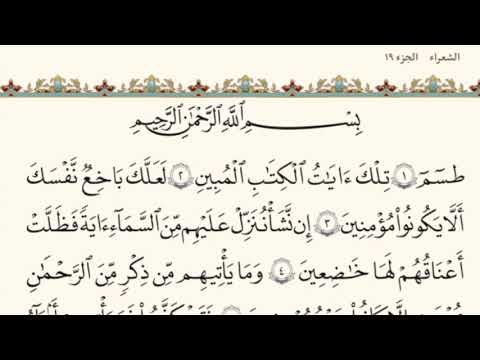 الشعراء الجزء ١٩
بِسْمِ ٱللَّهِ ٱلرَّحْمَٰنِ ٱلرَّحِيمِ
طسٓمٓ ١ تِلْكَ ءَايَٰتُ ٱلْكِتَٰبِ ٱلْمُبِينِ ٢ لَعَلَّكَ بَٰخِعٌ نَّفْسَكَ
أَلَّا يَكُونُوا۟ مُؤْمِنِينَ ٣ إِن نَّشَأْ نُنَزِّلْ عَلَيْهِم مِّنَ ٱلسَّمَآءِ ءَايَةً فَظَلَّتْ
أَعْنَٰقُهُمْ لَهَا خَٰضِعِينَ ٤ وَمَا يَأْتِيهِم مِّن ذِكْرٍ مِّنَ ٱلرَّحْمَٰنِ